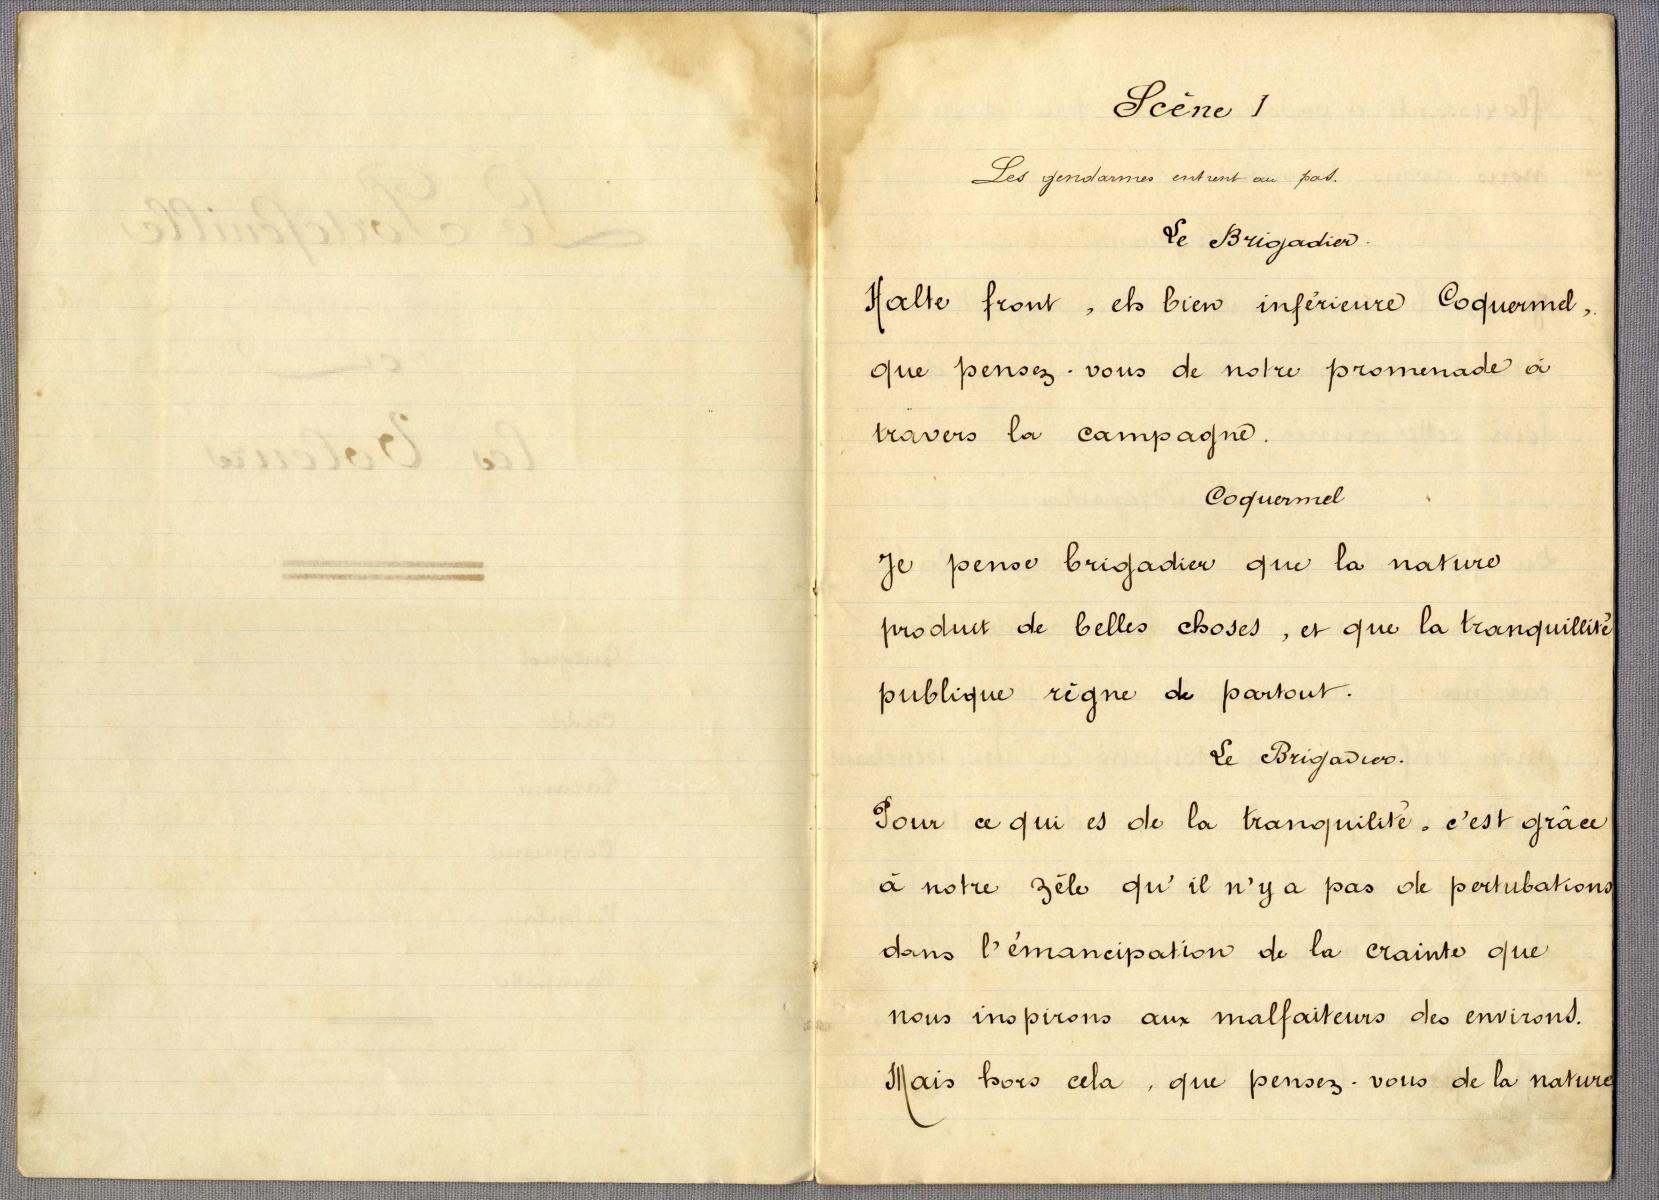 Scène 1
Les gendarmes entrent au pas.
Le Brigadier.
Halte front, eh bien inférieure Coquermel,
que pensez-vous de notre promenade à
travers la campagne.
Coquermel
Je pense brigadier que la nature
produit de belles choses, et que la tranquillité
publique règne de partout.
Le Brigadier.
Pour ce qui es de la tranquilité, c'est grâce
à notre zèle qu'il n'y a pas de pertubations
dans l'émancipation de la crainte que
nous inspirons aux malfaiteurs des environs.
Mais hors cela, que pensez-vous de la nature